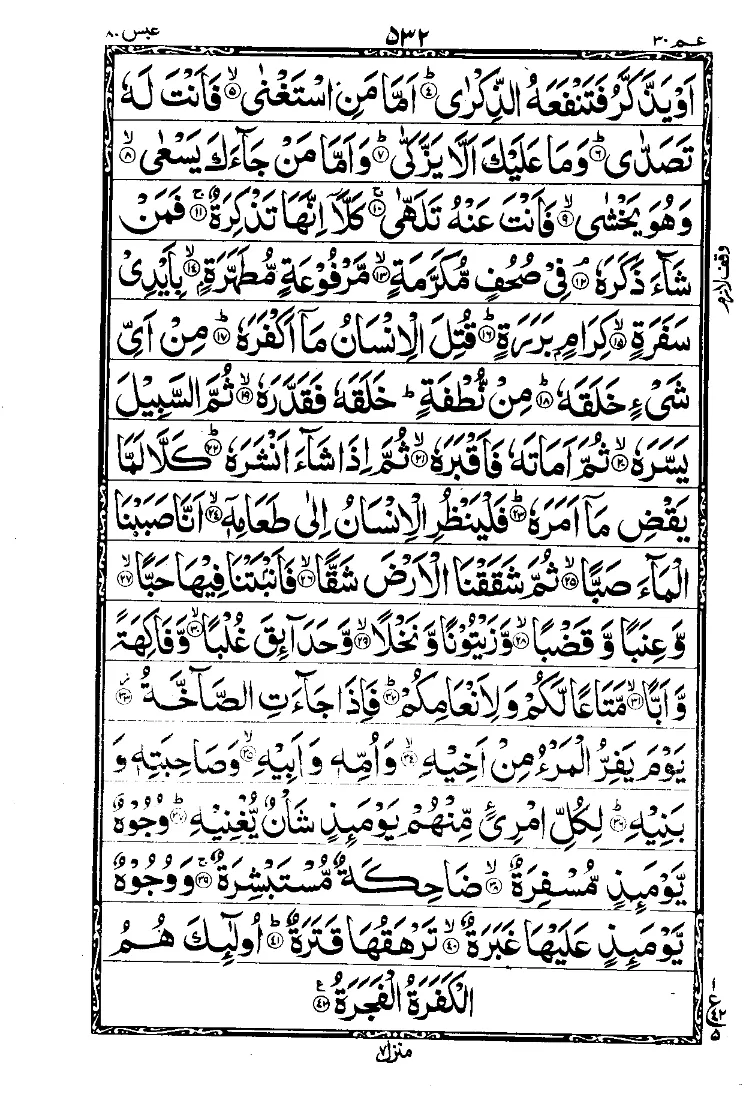 عـم ٣٠ ٥٣٢ عبس ٨٠
اَوۡ يَذَّكَّرُ فَتَنۡفَعَهُ الذِّكۡرٰى ؕ‏﴿۴﴾ اَمَّا مَنِ اسۡتَغۡنٰى ۙ‏﴿۵﴾ فَاَنۡتَ لَهٗ
تَصَدّٰى ؕ‏﴿۶﴾ وَمَا عَلَيۡكَ اَلَّا يَزَّكّٰى ؕ‏﴿۷﴾ وَاَمَّا مَنۡ جَآءَكَ يَسۡعٰى ۙ‏﴿۸﴾
وَهُوَ يَخۡشٰى ۙ‏﴿۹﴾ فَاَنۡتَ عَنۡهُ تَلَهّٰى‌ ۚ‏﴿۱۰﴾ كَلَّاۤ اِنَّهَا تَذۡكِرَةٌ ۚ‏﴿۱۱﴾ فَمَنۡ
شَآءَ ذَكَرَهٗ‌ ۘ‏﴿۱۲﴾ فِىۡ صُحُفٍ مُّكَرَّمَةٍ ۙ‏﴿۱۳﴾ مَّرۡفُوۡعَةٍ مُّطَهَّرَةٍ ۙ‏﴿۱۴﴾ بِاَيۡدِىۡ
سَفَرَةٍ ۙ‏﴿۱۵﴾ كِرَامٍۢ بَرَرَةٍ ؕ‏﴿۱۶﴾ قُتِلَ الۡاِنۡسَانُ مَاۤ اَكۡفَرَهٗؕ‏﴿۱۷﴾ مِنۡ اَىِّ
شَىۡءٍ خَلَقَهٗؕ‏﴿۱۸﴾ مِنۡ نُّطۡفَةٍ ؕ خَلَقَهٗ فَقَدَّرَهٗ ۙ‏﴿۱۹﴾ ثُمَّ السَّبِيۡلَ
يَسَّرَهٗ ۙ‏﴿۲۰﴾ ثُمَّ اَمَاتَهٗ فَاَقۡبَرَهٗ ۙ‏﴿۲۱﴾ ثُمَّ اِذَا شَآءَ اَنۡشَرَهٗؕ‏﴿۲۲﴾ كَلَّا لَمَّا
يَقۡضِ مَاۤ اَمَرَهٗؕ‏﴿۲۳﴾ فَلۡيَنۡظُرِ الۡاِنۡسَانُ اِلٰى طَعَامِهٖۤ ۙ‏﴿۲۴﴾ اَنَّا صَبَبۡنَا
الۡمَآءَ صَبًّا ۙ‏﴿۲۵﴾ ثُمَّ شَقَقۡنَا الۡاَرۡضَ شَقًّا ۙ‏﴿۲۶﴾ فَاَنۡۢبَتۡنَا فِيۡهَا حَبًّا ۙ‏﴿۲۷﴾
وَّ عِنَبًا وَّ قَضۡبًا ۙ‏﴿۲۸﴾ وَّزَيۡتُوۡنًا وَّنَخۡلًا ۙ‏﴿۲۹﴾ وَّحَدَآئِقَ غُلۡبًا ۙ‏﴿۳۰﴾ وَّفَاكِهَةً
وَّ اَبًّا ۙ‏﴿۳۱﴾ مَّتَاعًا لَّـكُمۡ وَلِاَنۡعَامِكُمۡؕ‏﴿۳۲﴾ فَاِذَا جَآءَتِ الصَّآخَّةُ ‏﴿۳۳﴾
يَوۡمَ يَفِرُّ الۡمَرۡءُ مِنۡ اَخِيۡهِ ۙ‏﴿۳۴﴾ وَاُمِّهٖ وَاَبِيۡهِ ۙ‏﴿۳۵﴾ وَصَاحِبَتِهٖ وَ
بَنِيۡهِ ؕ‏﴿۳۶﴾ لِكُلِّ امۡرِئٍ مِّنۡهُمۡ يَوۡمَئِذٍ شَاۡنٌ يُّغۡنِيۡهِ ؕ‏﴿۳۷﴾ وُجُوۡهٌ
يَّوۡمَئِذٍ مُّسۡفِرَةٌ ۙ‏﴿۳۸﴾ ضَاحِكَةٌ مُّسۡتَبۡشِرَةٌ ۚ‏﴿۳۹﴾ وَوُجُوۡهٌ
يَّوۡمَئِذٍ عَلَيۡهَا غَبَرَةٌ ۙ‏﴿۴۰﴾ تَرۡهَقُهَا قَتَرَةٌ ؕ‏﴿۴۱﴾ اُولٰٓئِكَ هُمُ
الۡكَفَرَةُ الۡفَجَرَةُ ‏﴿۴۲﴾
وقف لازم
١ ع ٤٢ ٥
منزل ٧